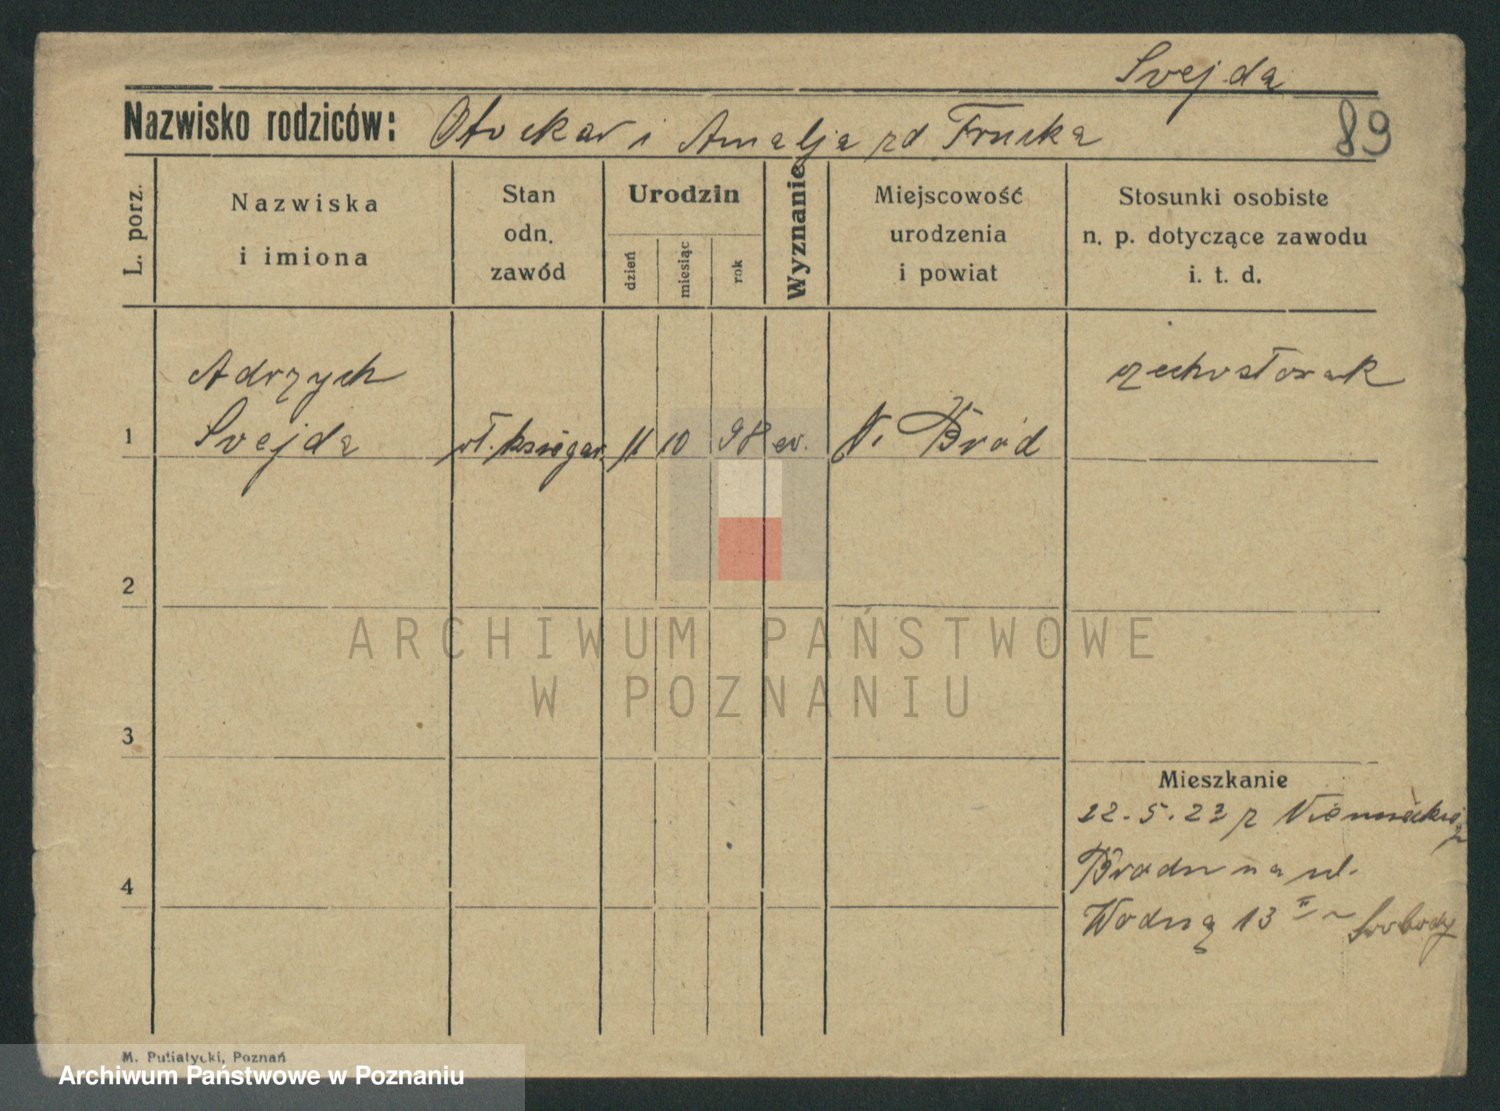 Svejda
Nazwisko rodziców: Otockar i Amalja zd Frucka
89
L. porz.
Nazwiska
i imiona
Stan
odn.
zawód
Urodzin
dzień
miesiąc
rok
Wyznanie
Miejscowość
urodzenia
i powiat
Stosunki osobiste
n. p. dotyczące zawodu
i. t. d.
1
Adrzych
Svejda
wł. księgar.
11
10
98
ev.
N. Bród
czechosłowak
2
ARCHIWUM PAŃSTWOWE
W POZNANIU
3
Mieszkanie
22.5.23 z Niemieckiego
Brodu na ul.
4
Wodną 13 II Svobody
M. Putiatycki, Poznań
Archiwum Państwowe w Poznaniu